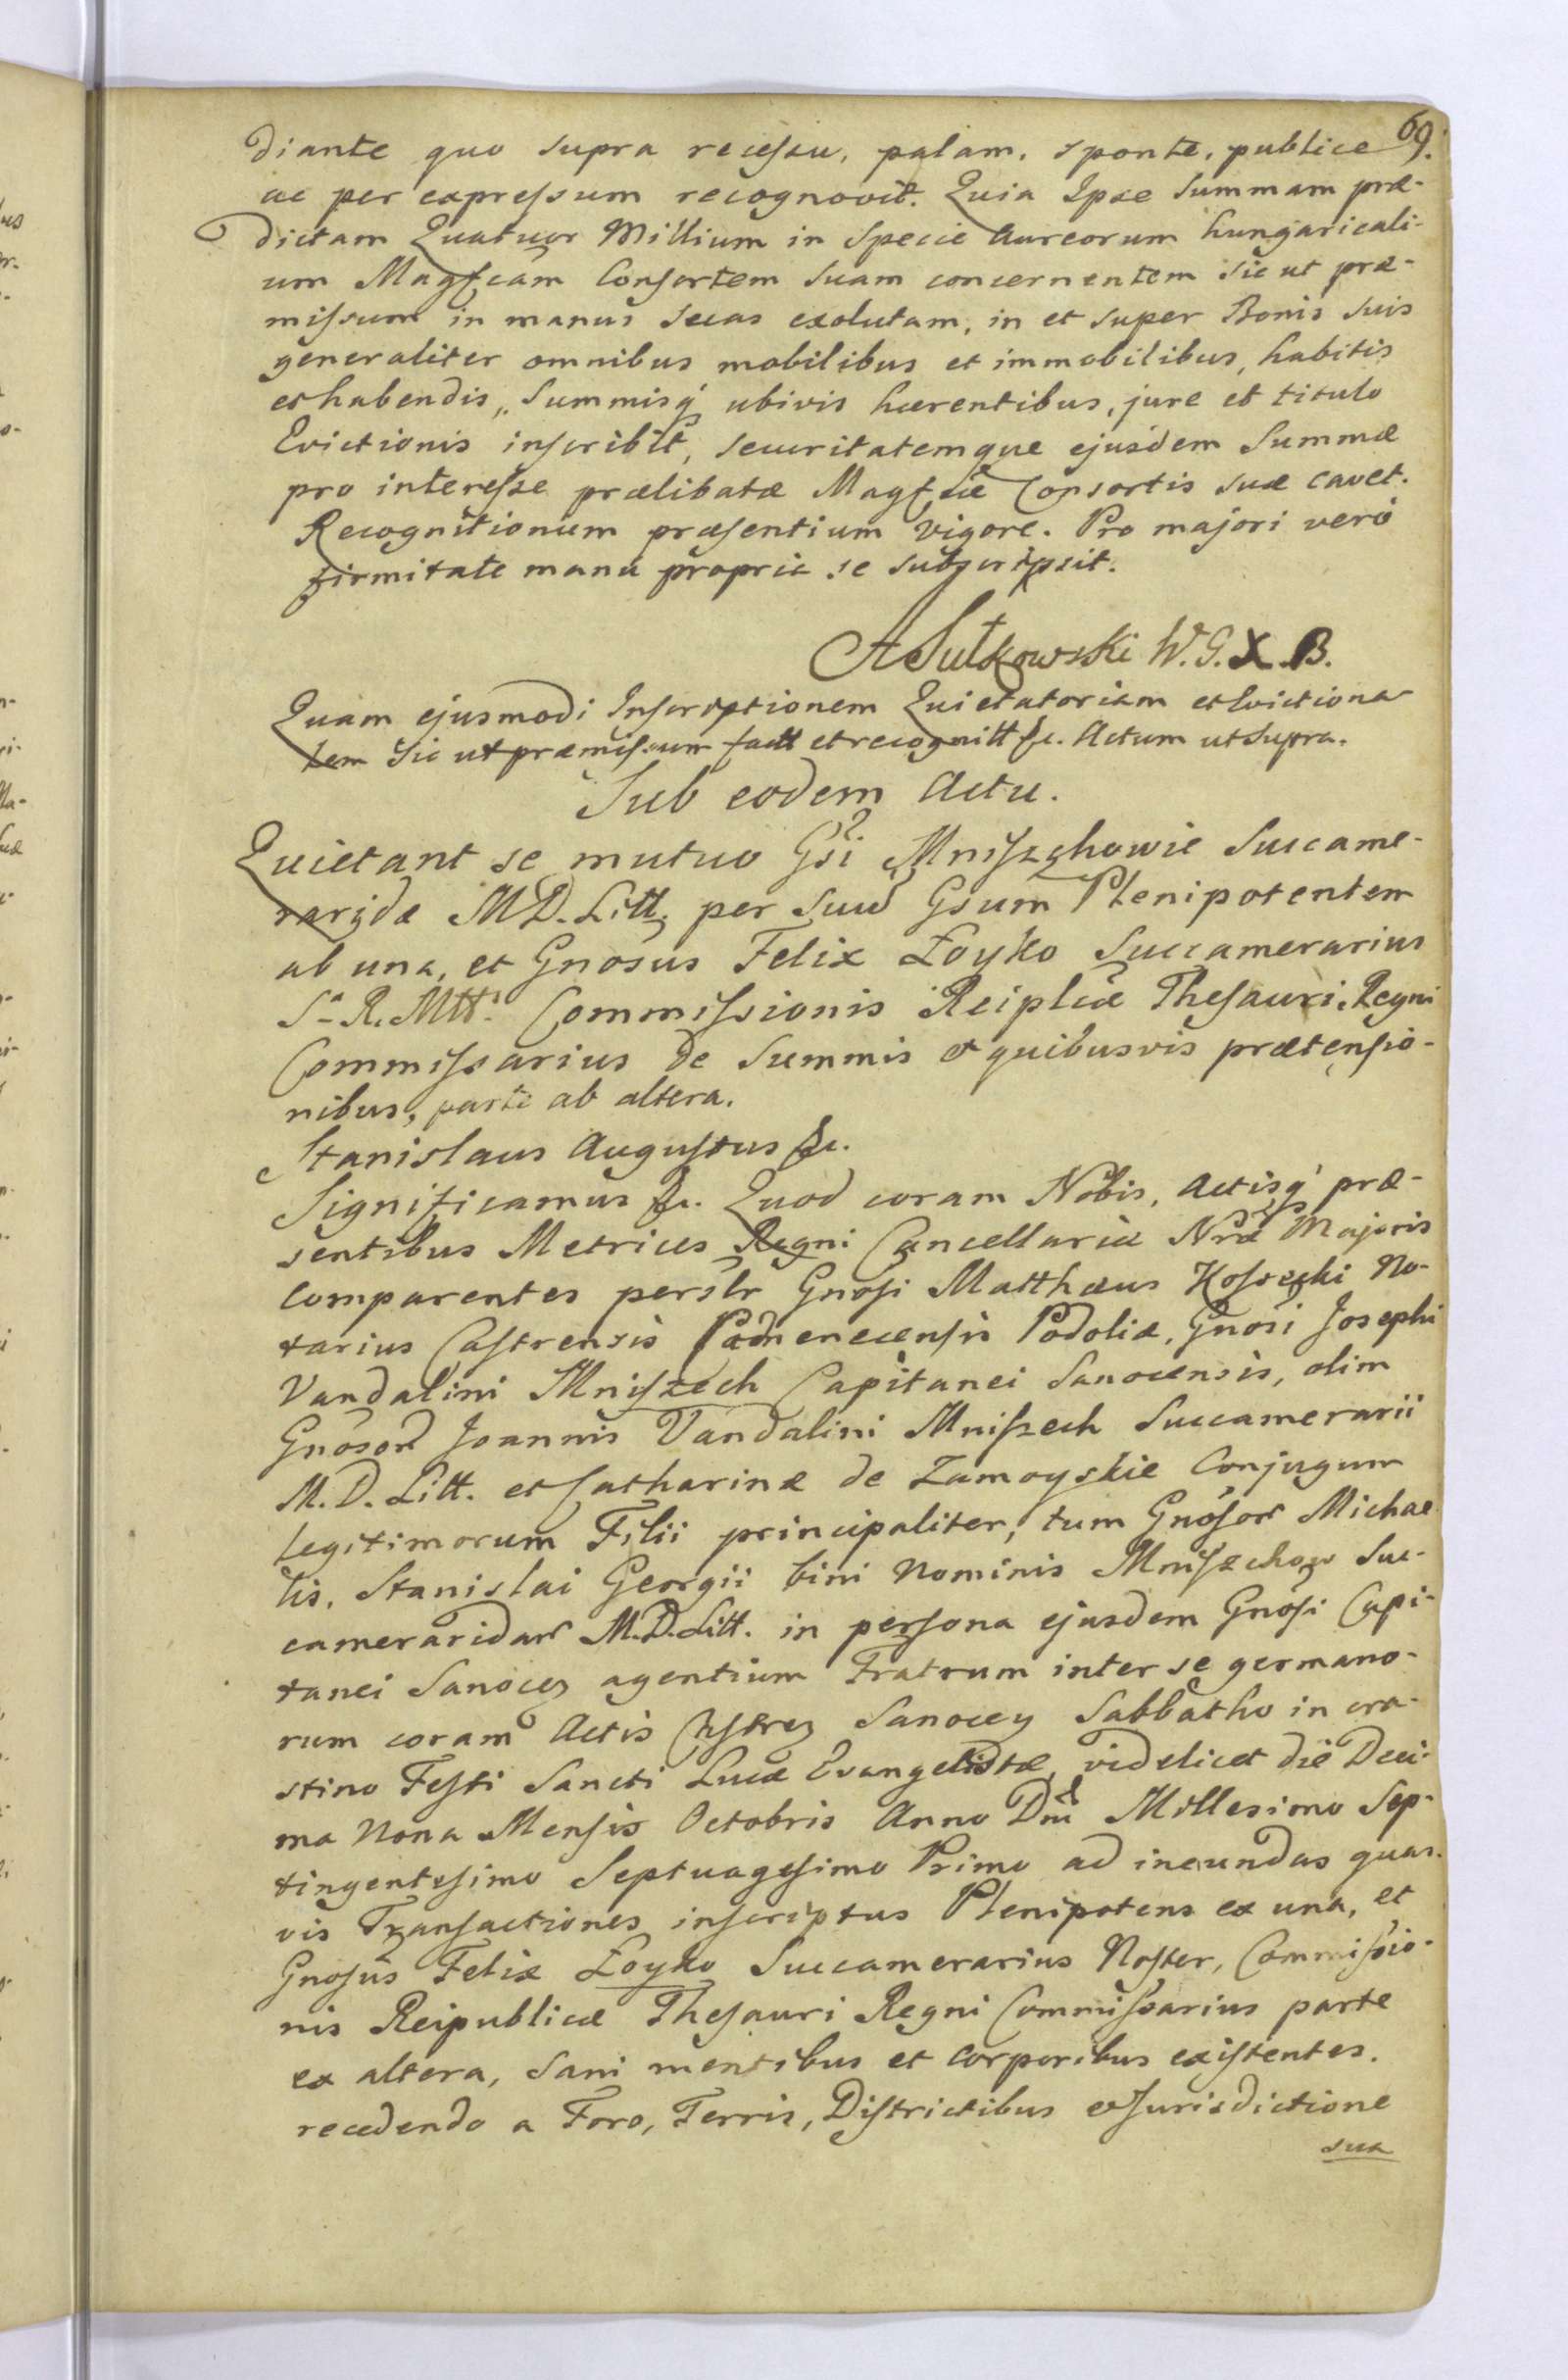 69.
diante quo supra recessu, palam, sponte, publice
ac per expressum recognovit. Quia Ipse Summam præ-
dictam Quatuor Millium in Specie Aureorum hungaricali-
um Magfcam Consortem Suam concernentem Sic ut præ-
missum in manus Suas exolutam, in et super Bonis Suis
generaliter omnibus mobilibus et immobilibus, habitis
et habendis, Summisq́ ubivis hærentibus, jure et titulo
Evictionis inscribit, securitatemque ejusdem Summæ
pro interesse prælibatæ Magfcæ Consortis suæ cavet.
Recognitionum præsentium vigore. Pro majori verò
firmitate manu propria se subscripsit.
A Sułkowski W. G. X. B.
Quam ejusmodi Inscriptionem Quietatoriam et Evictiona
lem Sic ut præmissum factt et recognitt &c. Actum ut Supra.
Sub eodem Actu.
Quietant se mutuo Gsi Mniszchowie Succame-
raridæ M D. Litt. per Suud Gsum Plenipotentem
ab una, et Gnosus Felix Łoyko Succamerarius
S. R. Mtt. Commissionis Reiplcæ Thesauri Regni
Commissarius de Summis et quibusvis prætensio-
nibus, parte ab altera.
Stanislaus Augustus &c.
Significamus &c. Quod coram Nobis, Actisq́ præ-
sentibus Metrices Regni Cancellariæ Nræ Majoris
Comparentes persltr Gnosi Matthæus Kossecki No-
tarius Castrensis Camenecensis Podoliæ, Gnosi Josephi
Vandalini Mniszech Capitanei Sanocensis, olim
Gnosor Joannis Vandalini Mniszech Succamerarii
M. D. Litt. et Catharinæ de Zamoyskie Conjugum
legitimorum Filii principaliter, tum Gnosor Michae
lis, Stanislai Georgii bini Nominis Mniszchow Suc-
cameraridar M. D. Litt. in persona ejusdem Gnosi Capi-
tanei Sanocen agentium Fratrum inter se germano-
rum coram Actis Castren Sanocen Sabbatho in cra-
stino Festi Sancti Lucæ Evangelistæ, videlicet die Deci-
ma Nona Mensis Octobris Anno Dni Millesimo Sep-
tingentesimo Septuagesimo Primo ad ineundas quas-
vis Transactiones inscriptus Plenipotens ex una, et
Gnosus Felix Łoyko Succamerarius Noster, Commissio-
nis Reipublicæ Thesauri Regni Commissarius parte
ex altera, Sani mentibus et corporibus existentes.
recedendo a Foro, Terris, Districtibus et Jurisdictione
sua